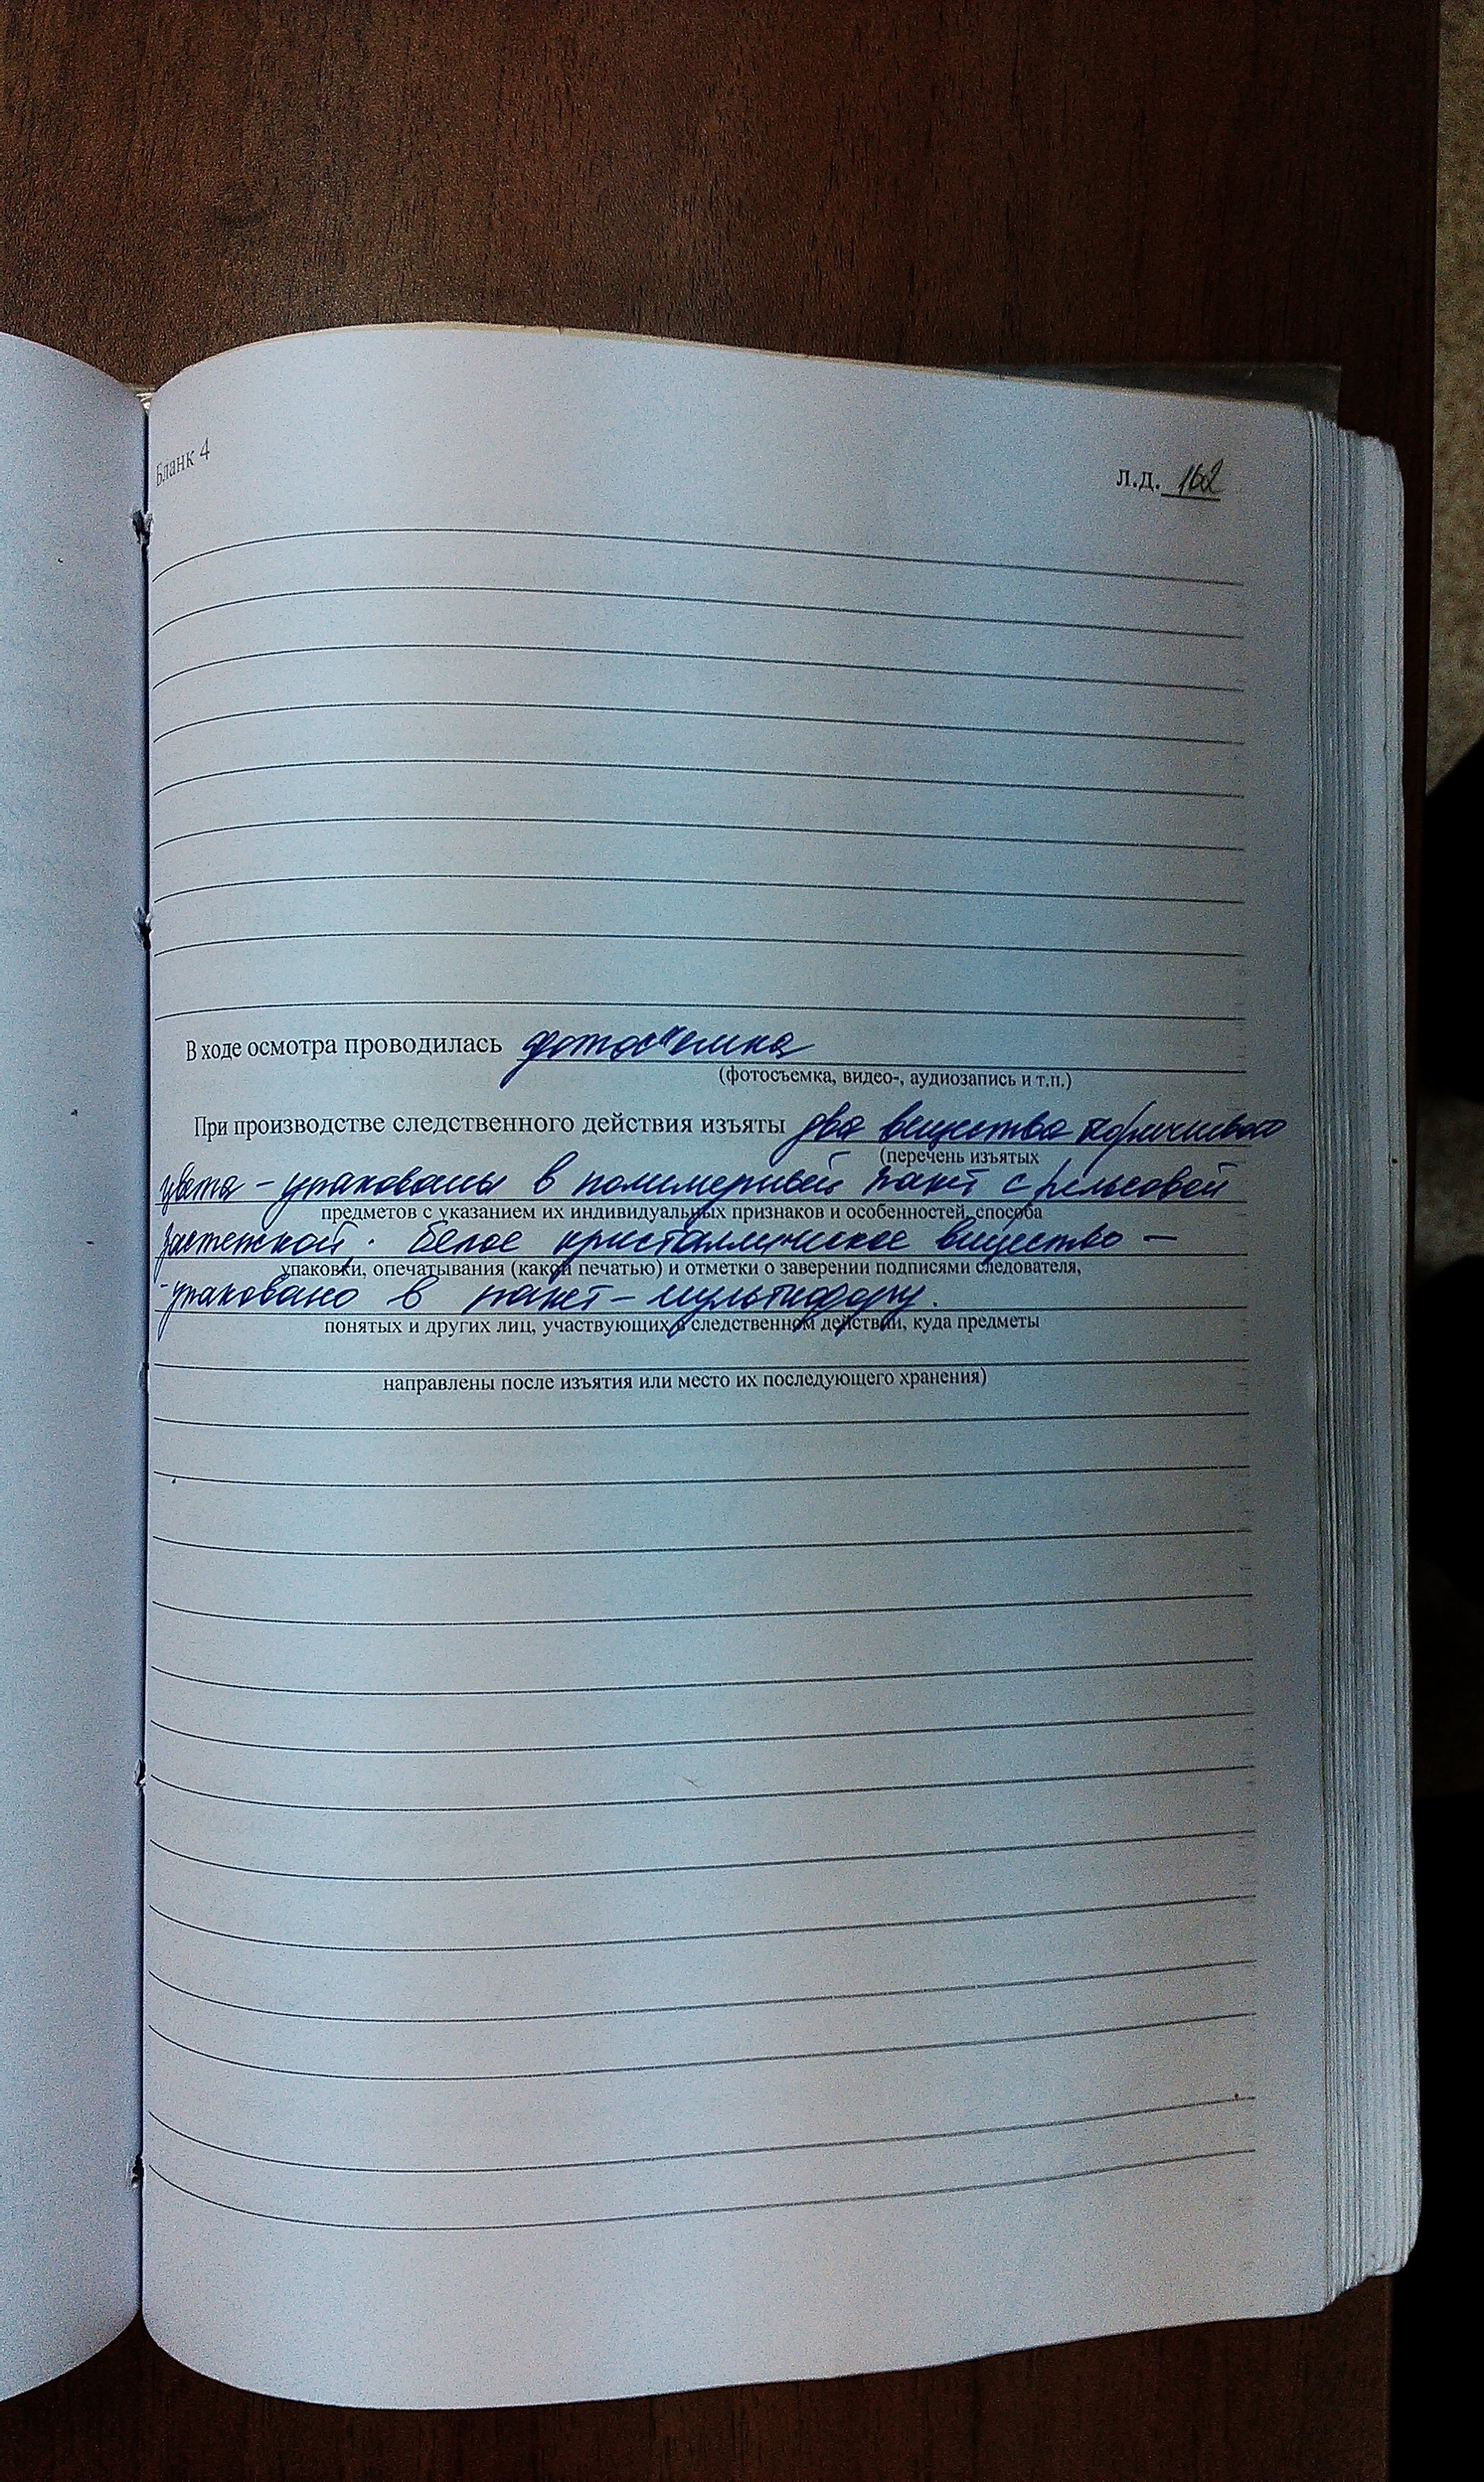 Бланк 4
л.д. 162
В ходе осмотра проводилась фотосъемка
(фотосъемка, видео-, аудиозапись и т.п.)
При производстве следственного действия изъяты два вещества коричневого
(перечень изъятых
цвета - упакованы в полимерный пакет с рельсовой
предметов с указанием их индивидуальных признаков и особенностей, способа
застежкой; белое кристаллическое вещество -
упаковки, опечатывания (какой печатью) и отметки о заверении подписями следователя,
- упаковано в пакет - мультифору.
понятых и других лиц, участвующих в следственном действии, куда предметы
направлены после изъятия или место их последующего хранения)